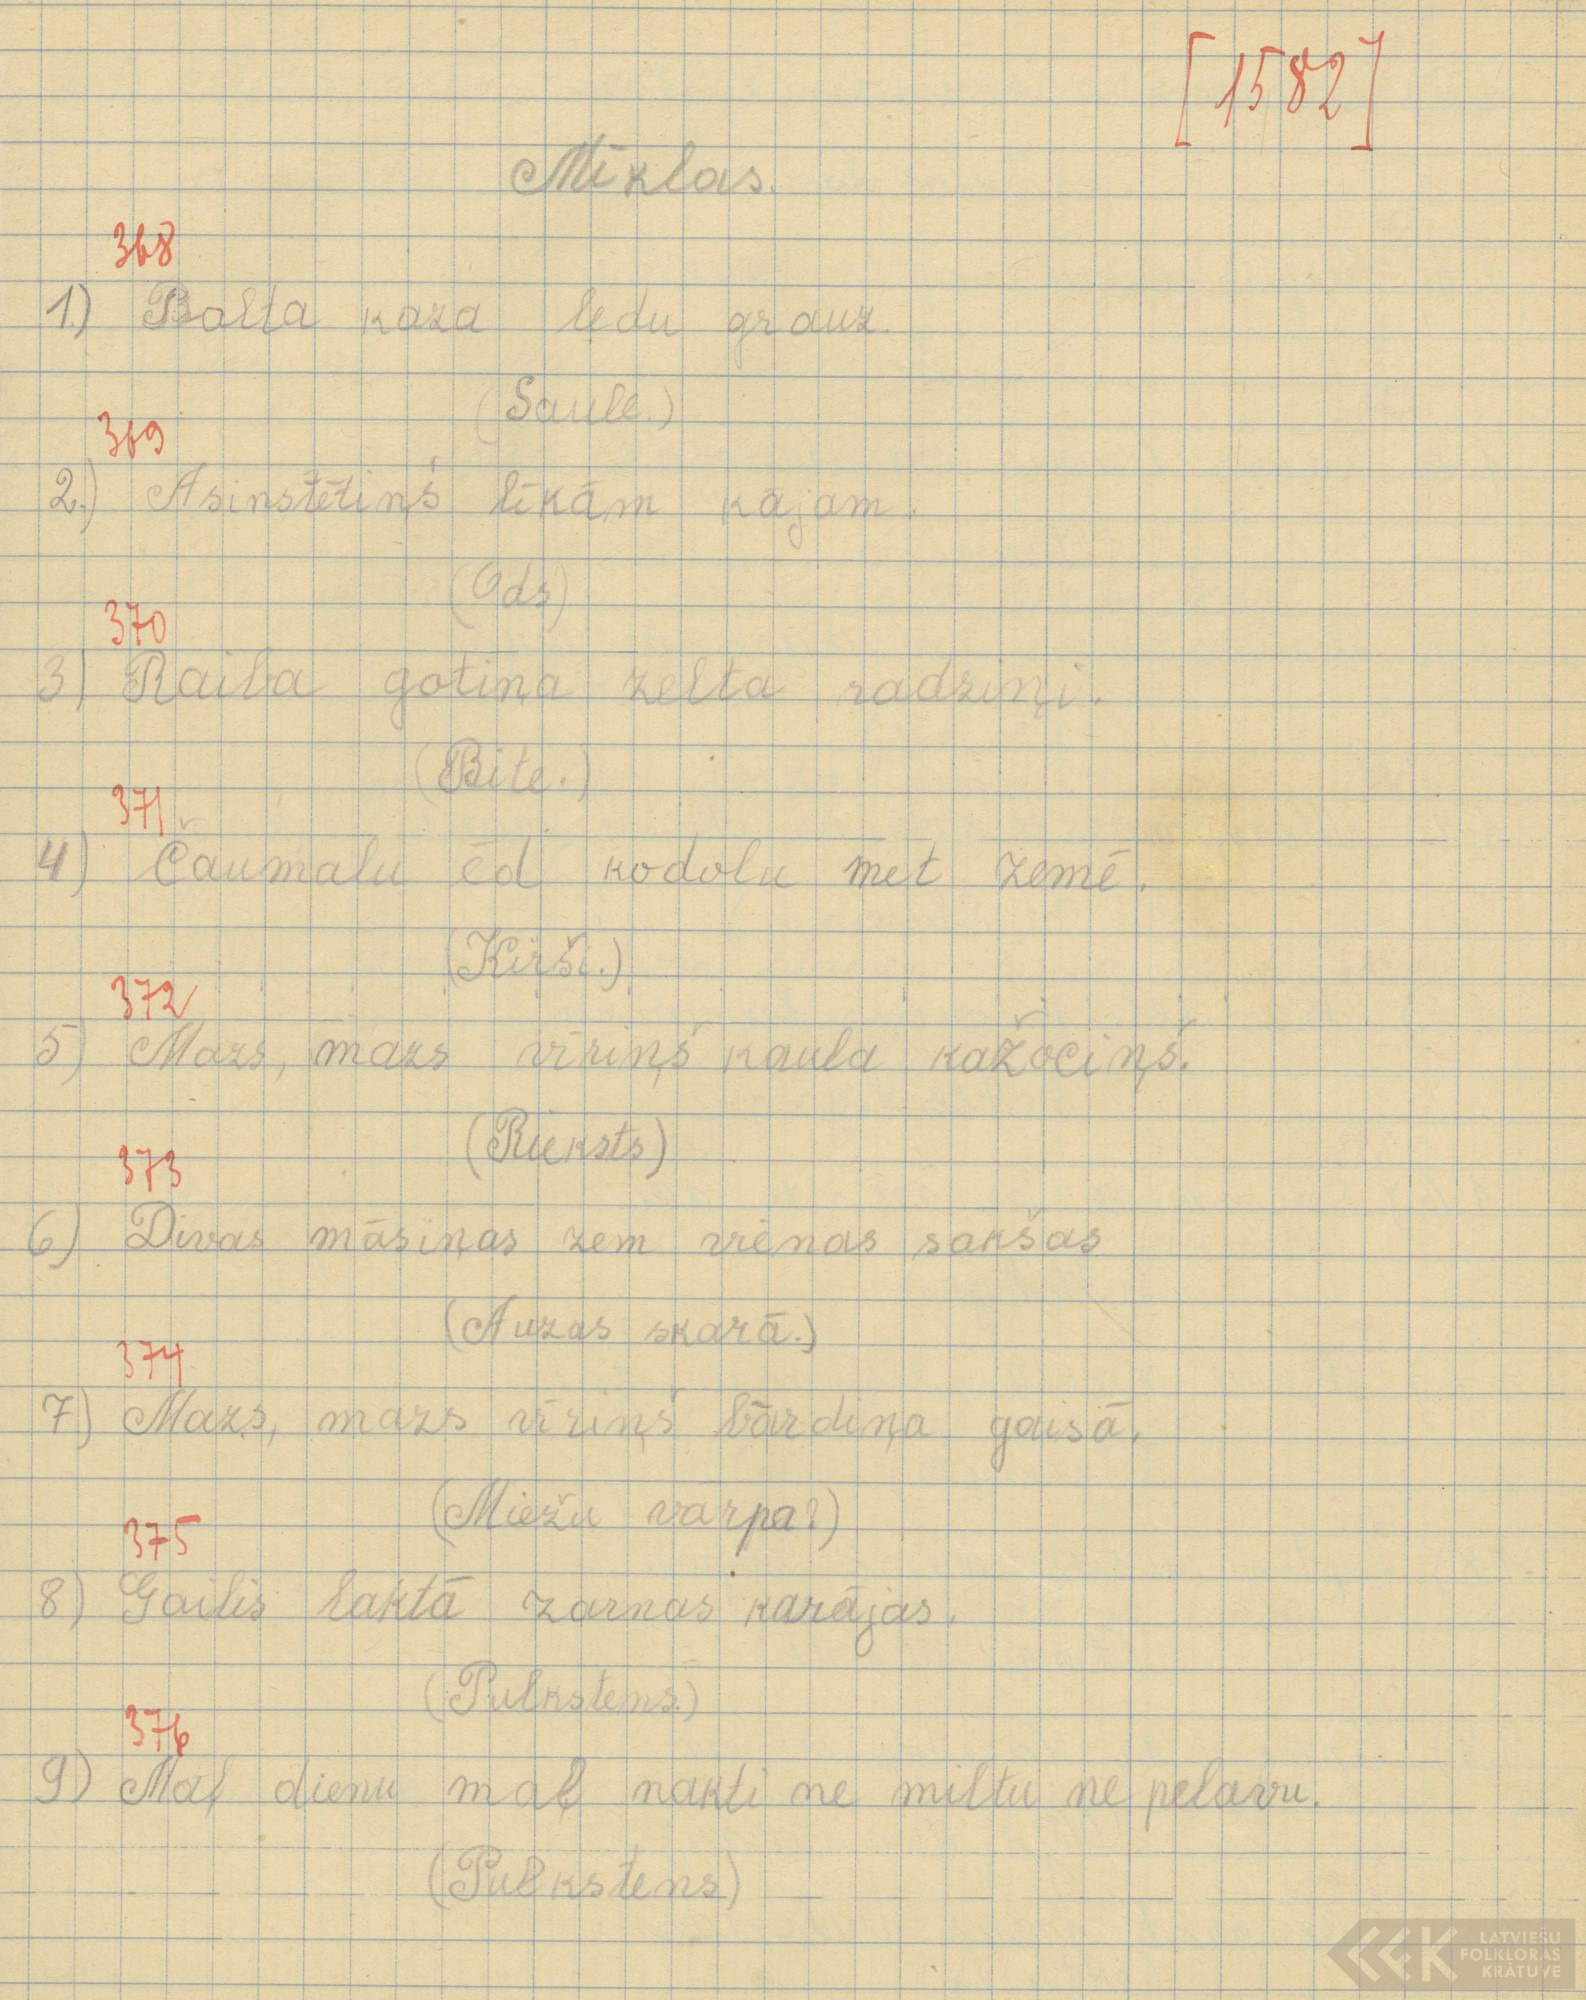 [1582]
Mīklas.
368
1.) Balta kaza ledu grauz.
(Saule.)
369
2.) Asinstētiņš līkām kājam.
(Ods)
370
3) Raiba gotiņa zelta radziņi.
(Bite.)
371
4) Čaumalu ēd kodolu met zemē.
(Kirši.)
372
5) Mazs, mazs vīriņš kaula kažociņš.
(Rieksts)
373
6) Divas māsiņas zem vienas sakšas
(Auzas skarā.)
374
7) Mazs, mazs vīriņš bārdiņa gaisā.
(Miežu vārpa?)
375
8) Gailis laktā zarnas karājas.
(Pulkstens.)
376
9) Maļ dienu maļ nakti ne miltu ne pelavu.
(Pulkstens)
LATVIEŠU
FOLKLORAS
KRĀTUVE